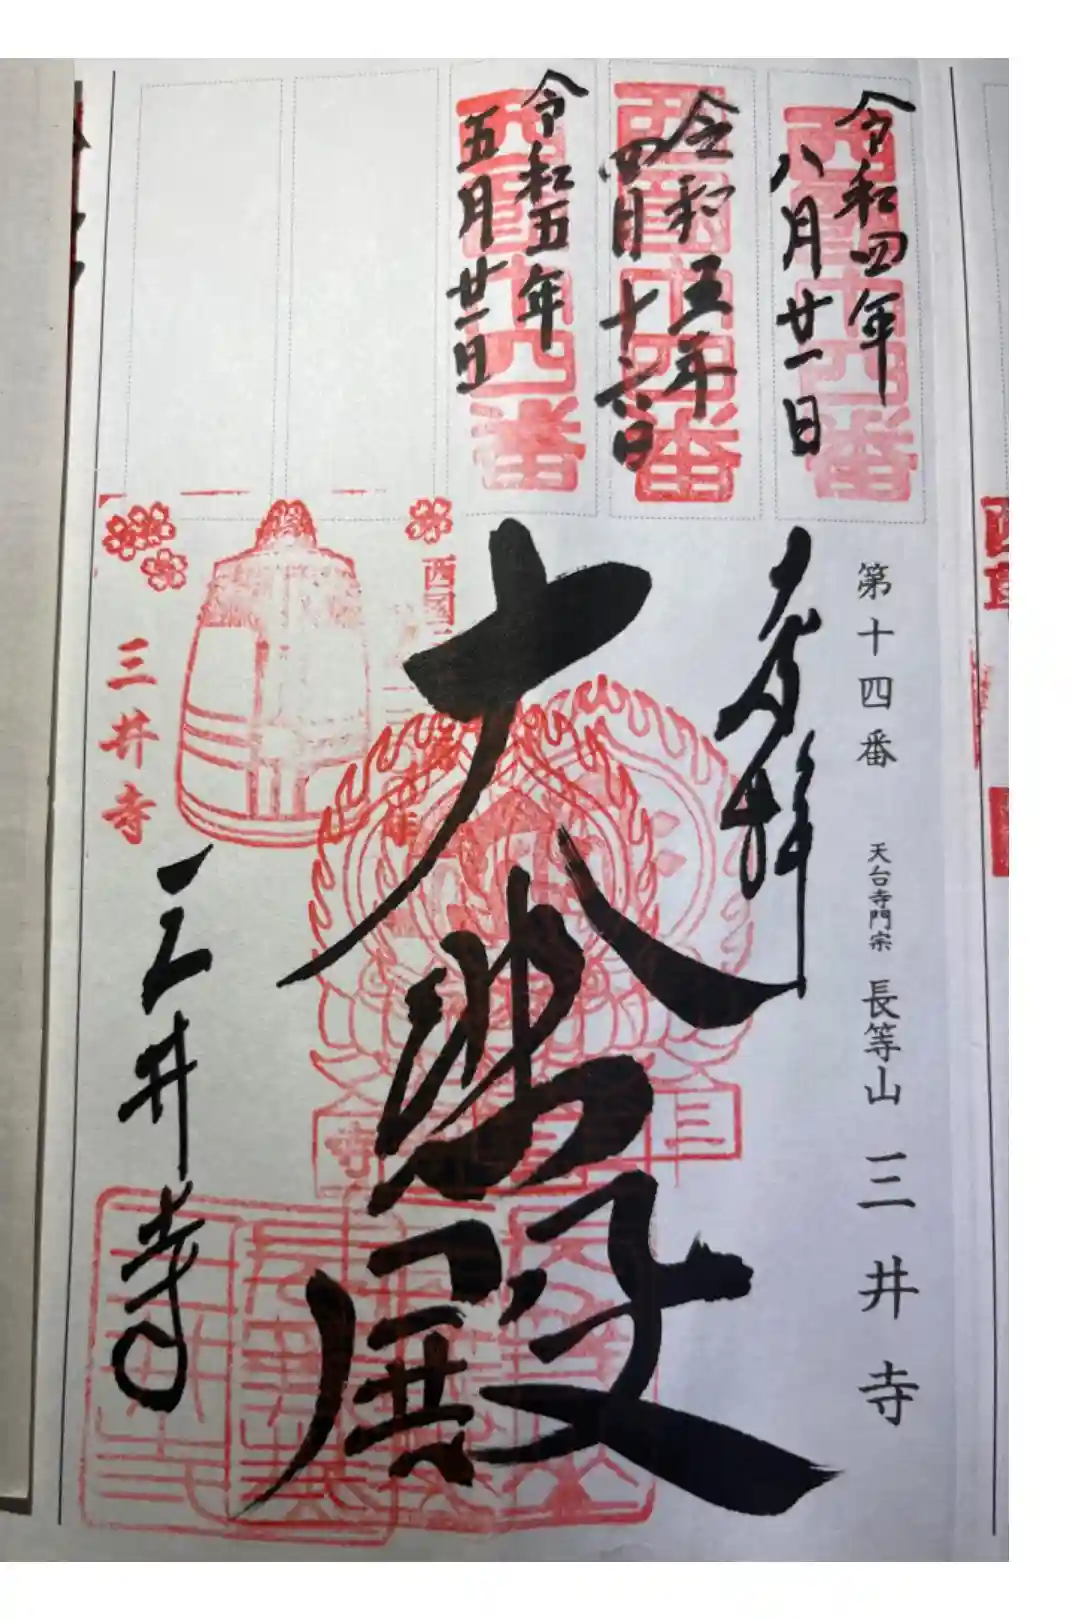 令和四年
八月廿一日
西国十四番
令和五年
四月十六日
西国十四番
令和五年
五月廿一日
西国十四番
第十四番 天台寺門宗 長等山 三井寺
奉拝
大悲殿
三井寺
三井寺